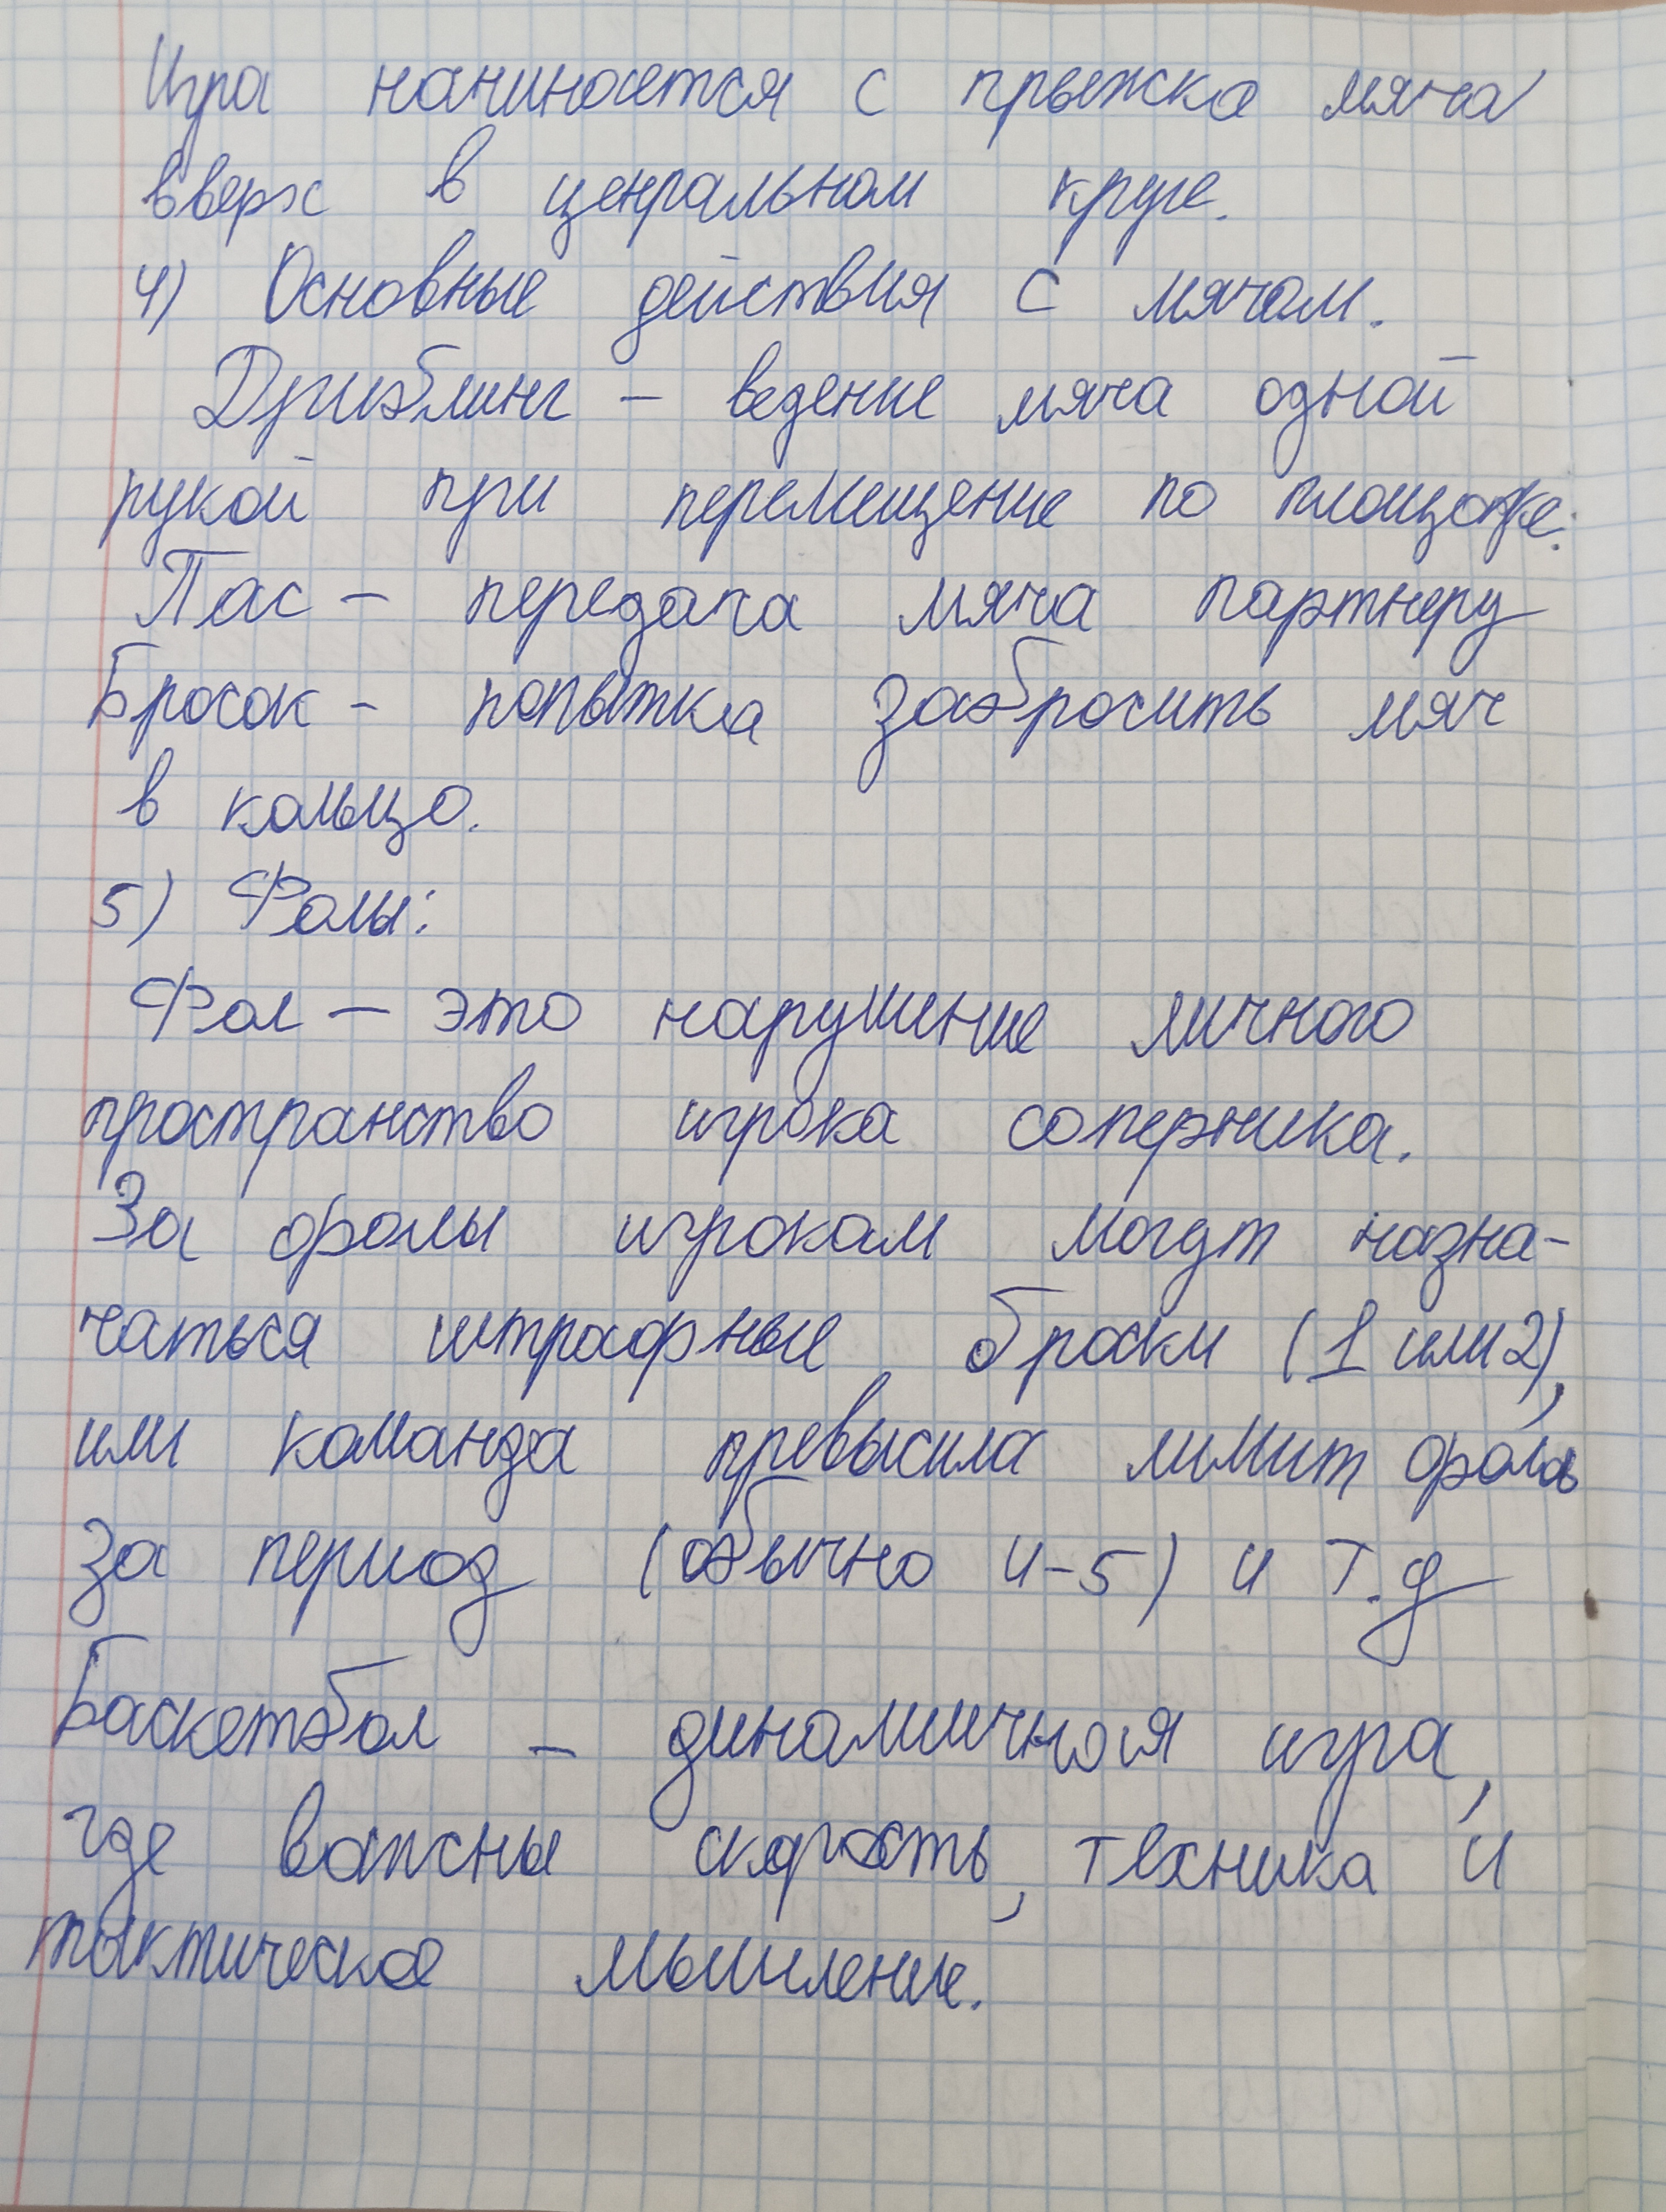 Игра начинается с прыжка мяча
вверх в ценральном круге.
4) Основные действия с мячом.
Дриблинг – ведение мяча одной
рукой при перемещение по площадке.
Пас – передача мяча партнеру
Бросок – попытка забросить мяч
в кольцо.
5) Фолы:
Фол – это нарушение личного
пространство игрока соперника.
За фолы игрокам могут назна-
чаться штрафные броски (1 или 2),
или команда превысила лимит фола
за период (обычно 4-5) и т.д
Баскетбол – динамичная игра,
где важны скорость, техника и
тактическое мышление.